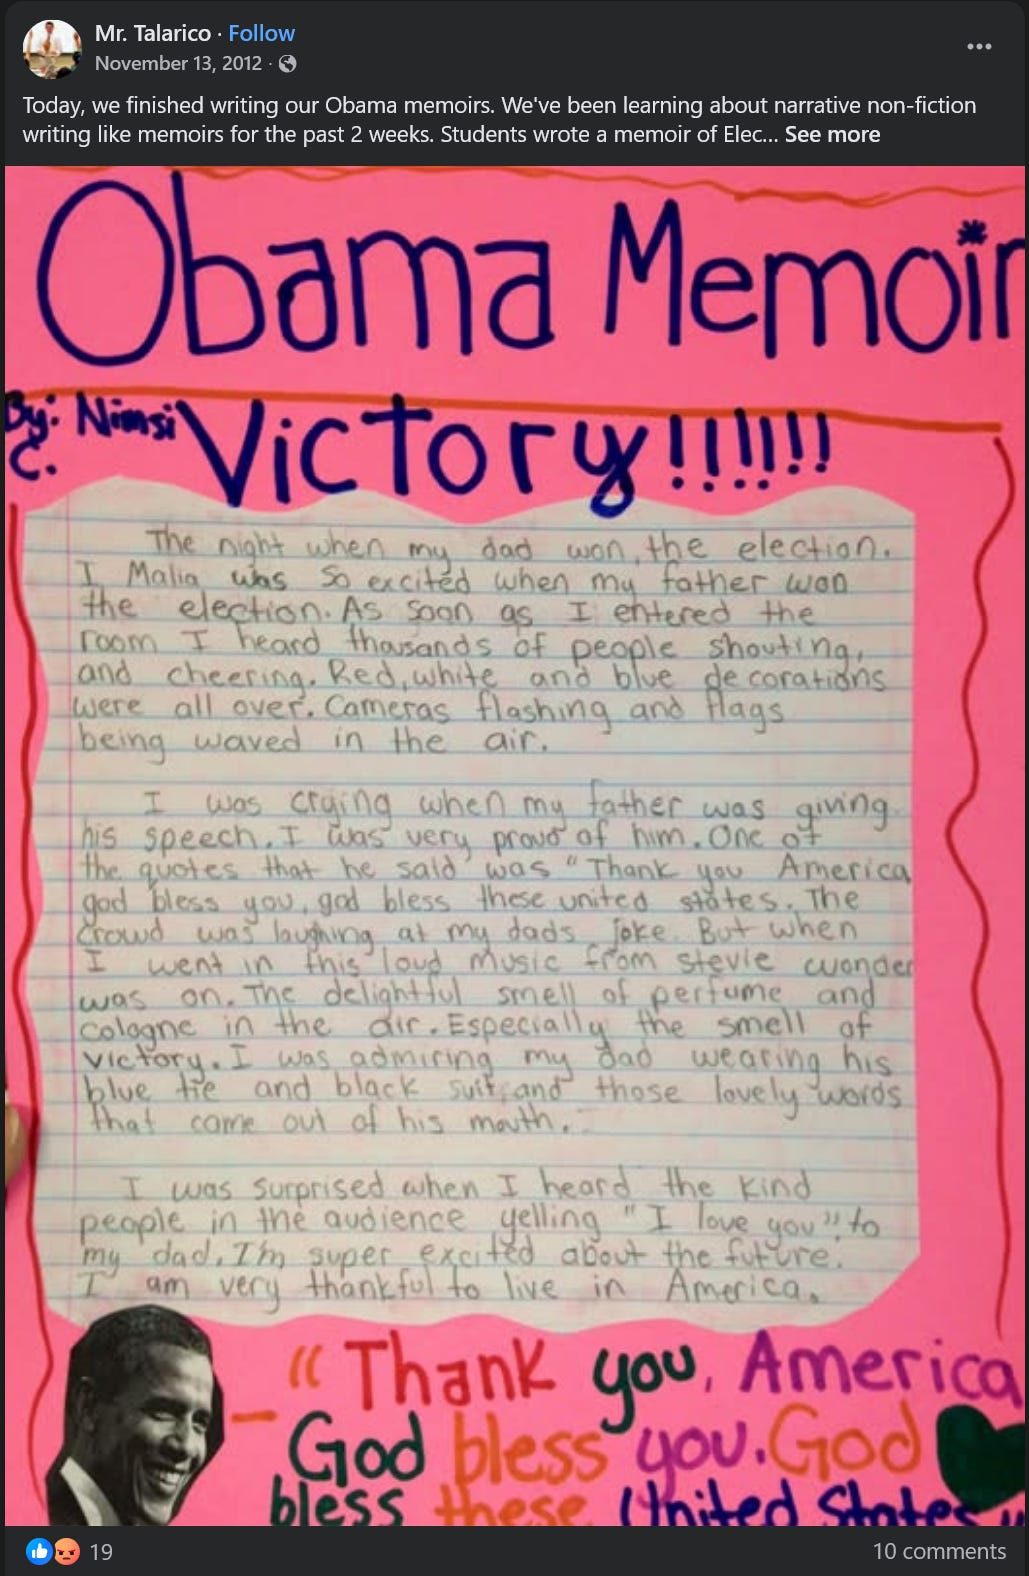 Mr. Talarico · Follow
November 13, 2012 ·
Today, we finished writing our Obama memoirs. We've been learning about narrative non-fiction
writing like memoirs for the past 2 weeks. Students wrote a memoir of Elec... See more
Obama Memoir
By: Nimsi
C.
Victory!!!!!!
The night when my dad won, the election.
I Malia was so excited when my father won
the election. As soon as I entered the
room I heard thousands of people shouting,
and cheering. Red, white and blue decorations
were all over. Cameras flashing and flags
being waved in the air.
I was crying when my father was giving
his speech. I was very proud of him. One of
the quotes that he said was "Thank you America
god bless you, god bless these united states. The
crowd was laughing at my dads joke. But when
I went in this loud music from stevie wonder
was on. The delightful smell of perfume and
cologne in the air. Especially the smell of
victory. I was admiring my dad wearing his
blue tie and black suit, and those lovely words
that came out of his mouth.
I was surprised when I heard the kind
people in the audience yelling "I love you" to
my dad. I'm super excited about the future.
I am very thankful to live in America.
"Thank you, America
- God bless you. God
bless these United States
19
10 comments